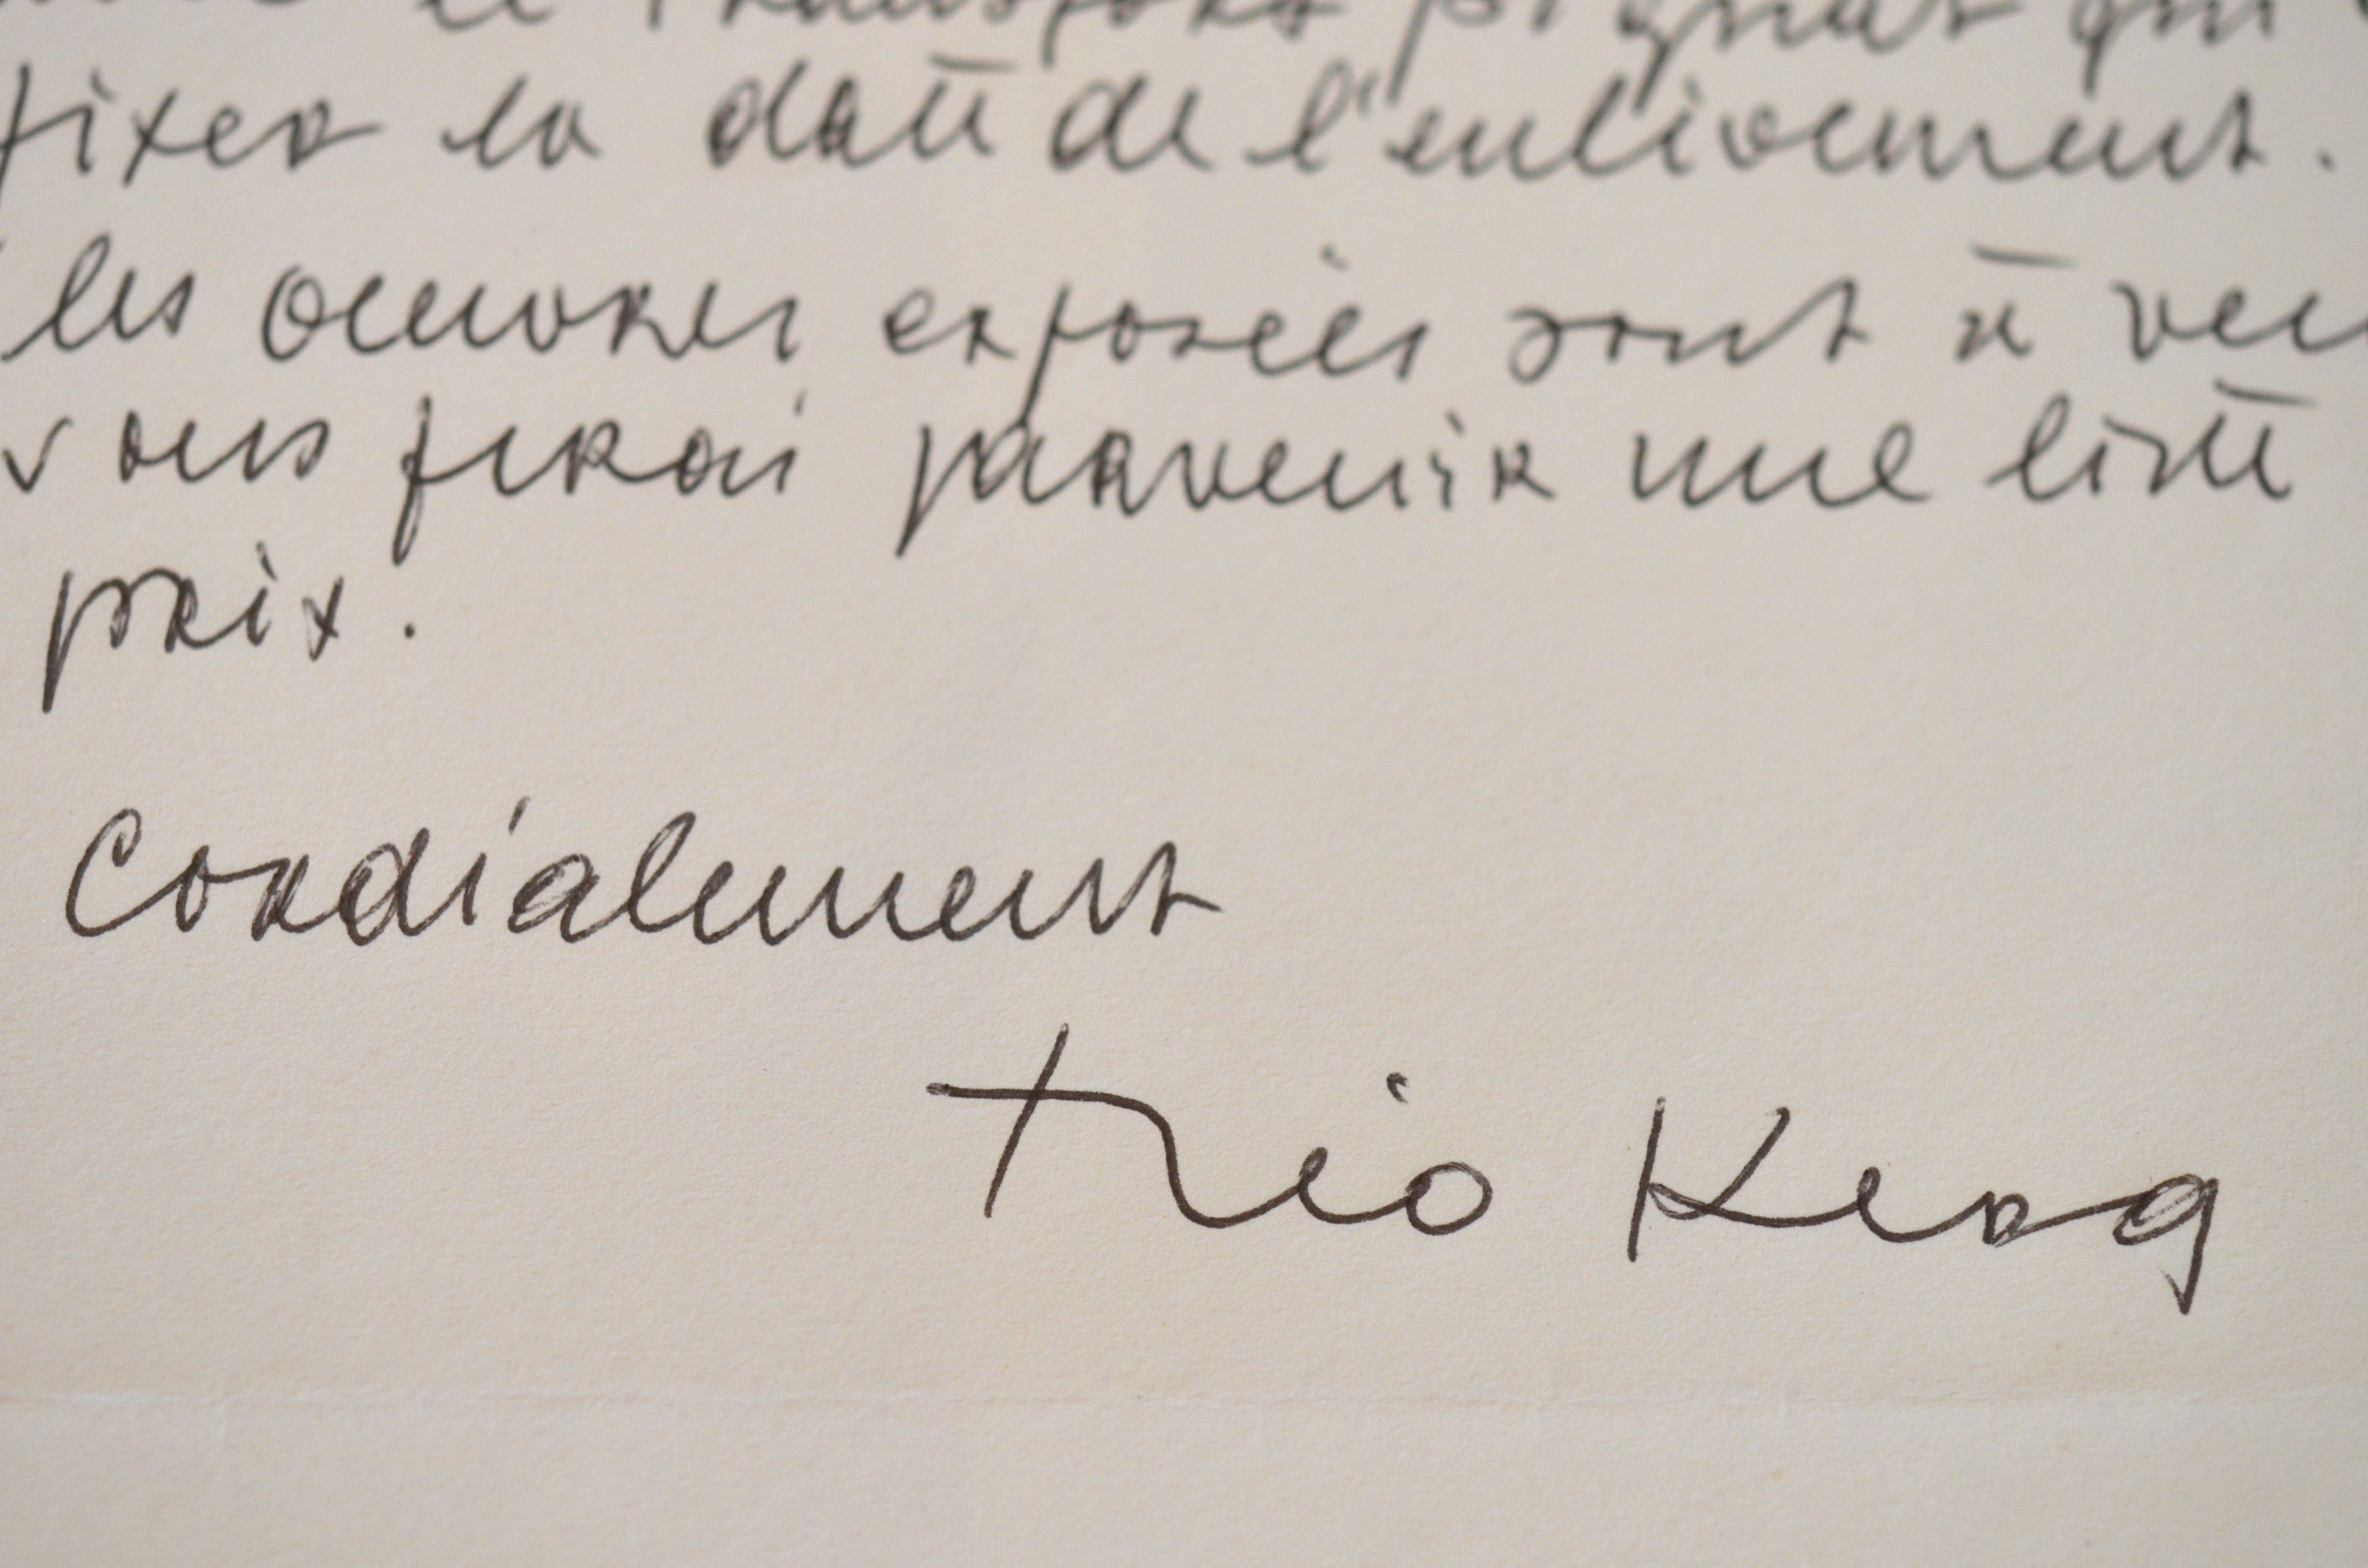 le transport Pignat qui
fixer la date de l'enlèvement.
les oeuvres exposées sont à ven
vous ferai parvenir une liste
prix.
Cordialement
Théo Kerg